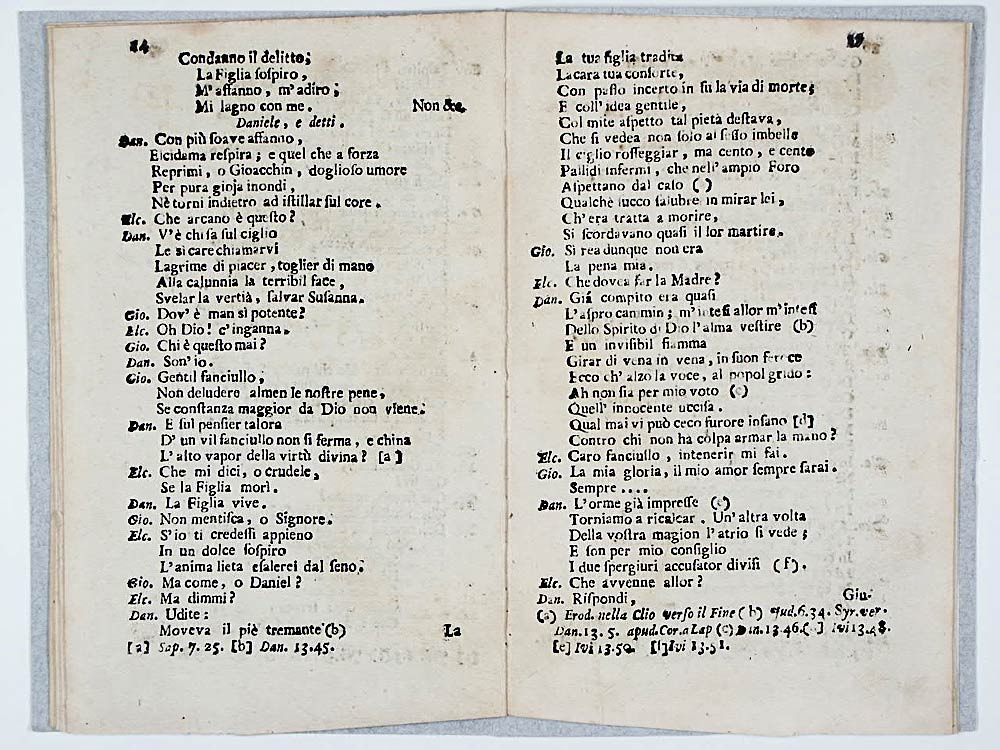 14
Condanno il delitto;
La Figlia ſoſpiro,
M'affanno, m'adiro;
Mi lagno con me. Non &c.
Daniele, e detti.
Dan. Con più ſoave affanno,
Elcidama reſpira; e quel che a forza
Reprimi, o Gioacchin, doglioſo umore
Per pura gioja inondi,
Nè torni indietro ad iſtillar ſul core.
Elc. Che arcano è queſto?
Dan. V'è chi ſa ſul ciglio
Le sì care chiamarvi
Lagrime di piacer, toglier di mano
Alla calunnia la terribil face,
Svelar la vertià, ſalvar Suſanna.
Gio. Dov'è man sì potente?
Elc. Oh Dio! c'inganna.
Gio. Chi è queſto mai?
Dan. Son'io.
Gio. Gentil fanciullo,
Non deludere almen le noſtre pene,
Se conſtanza maggior da Dio non viene.
Dan. E ſul penſier talora
D'un vil fanciullo non ſi ferma, e china
L'alto vapor della virtù divina? [a]
Elc. Che mi dici, o crudele,
Se la Figlia morì.
Dan. La Figlia vive.
Gio. Non mentiſca, o Signore.
Elc. S'io ti credeſſi appieno
In un dolce ſoſpiro
L'anima lieta eſalerei dal ſeno.
Gio. Ma come, o Daniel?
Elc. Ma dimmi?
Dan. Udite:
Moveva il piè tremante (b) La
[a] Sap. 7. 25. [b] Dan. 13.45.
15
La tua figlia tradita
La cara tua conſorte,
Con paſſo incerto in ſu la via di morte;
E coll'idea gentile,
Col mite aſpetto tal pietà deſtava,
Che ſi vedea non ſolo al ſeſſo imbelle
Il ciglio roſſeggiar, ma cento, e cento
Pallidi infermi, che nell'ampio Foro
Aſpettano dal caſo ( )
Qualchè ſucco ſalubre in mirar lei,
Ch'era tratta a morire,
Si ſcordavano quaſi il lor martire.
Gio. Sì rea dunque non era
La pena mia.
Elc. Che dovea far la Madre?
Dan. Giá compito era quaſi
L'aſpro cammin; m'inteſi allor m'inteſi
Dello Spirito di Dio l'alma veſtire (b)
E un inviſibil fiamma
Girar di vena in vena, in ſuon feroce
Ecco ch'alzo la voce, al popol grido:
Ah non ſia per mio voto (c)
Quell'innocente ucciſa.
Qual mai vi può ceco furore inſano [d]
Contro chi non ha colpa armar la mano?
Elc. Caro fanciullo, intenerir mi fai.
Gio. La mia gloria, il mio amor ſempre ſarai.
Sempre ....
Dan. L'orme già impreſſe (e)
Torniamo a ricalcar. Un'altra volta
Della voſtra magion l'atrio ſi vede;
E ſon per mio conſiglio
I due ſpergiuri accuſator diviſi (f).
Elc. Che avvenne allor?
Dan. Riſpondi, Giu-
(a) Erod. nella Clio verſo il Fine (b) apud. 6.34. Syr. ver.
Dan. 13. 5. apud. Cor. a Lap (c) Din. 13.46. [ ] Ivi 13.48.
[e] Ivi 13.50. [f] Ivi 13.51.